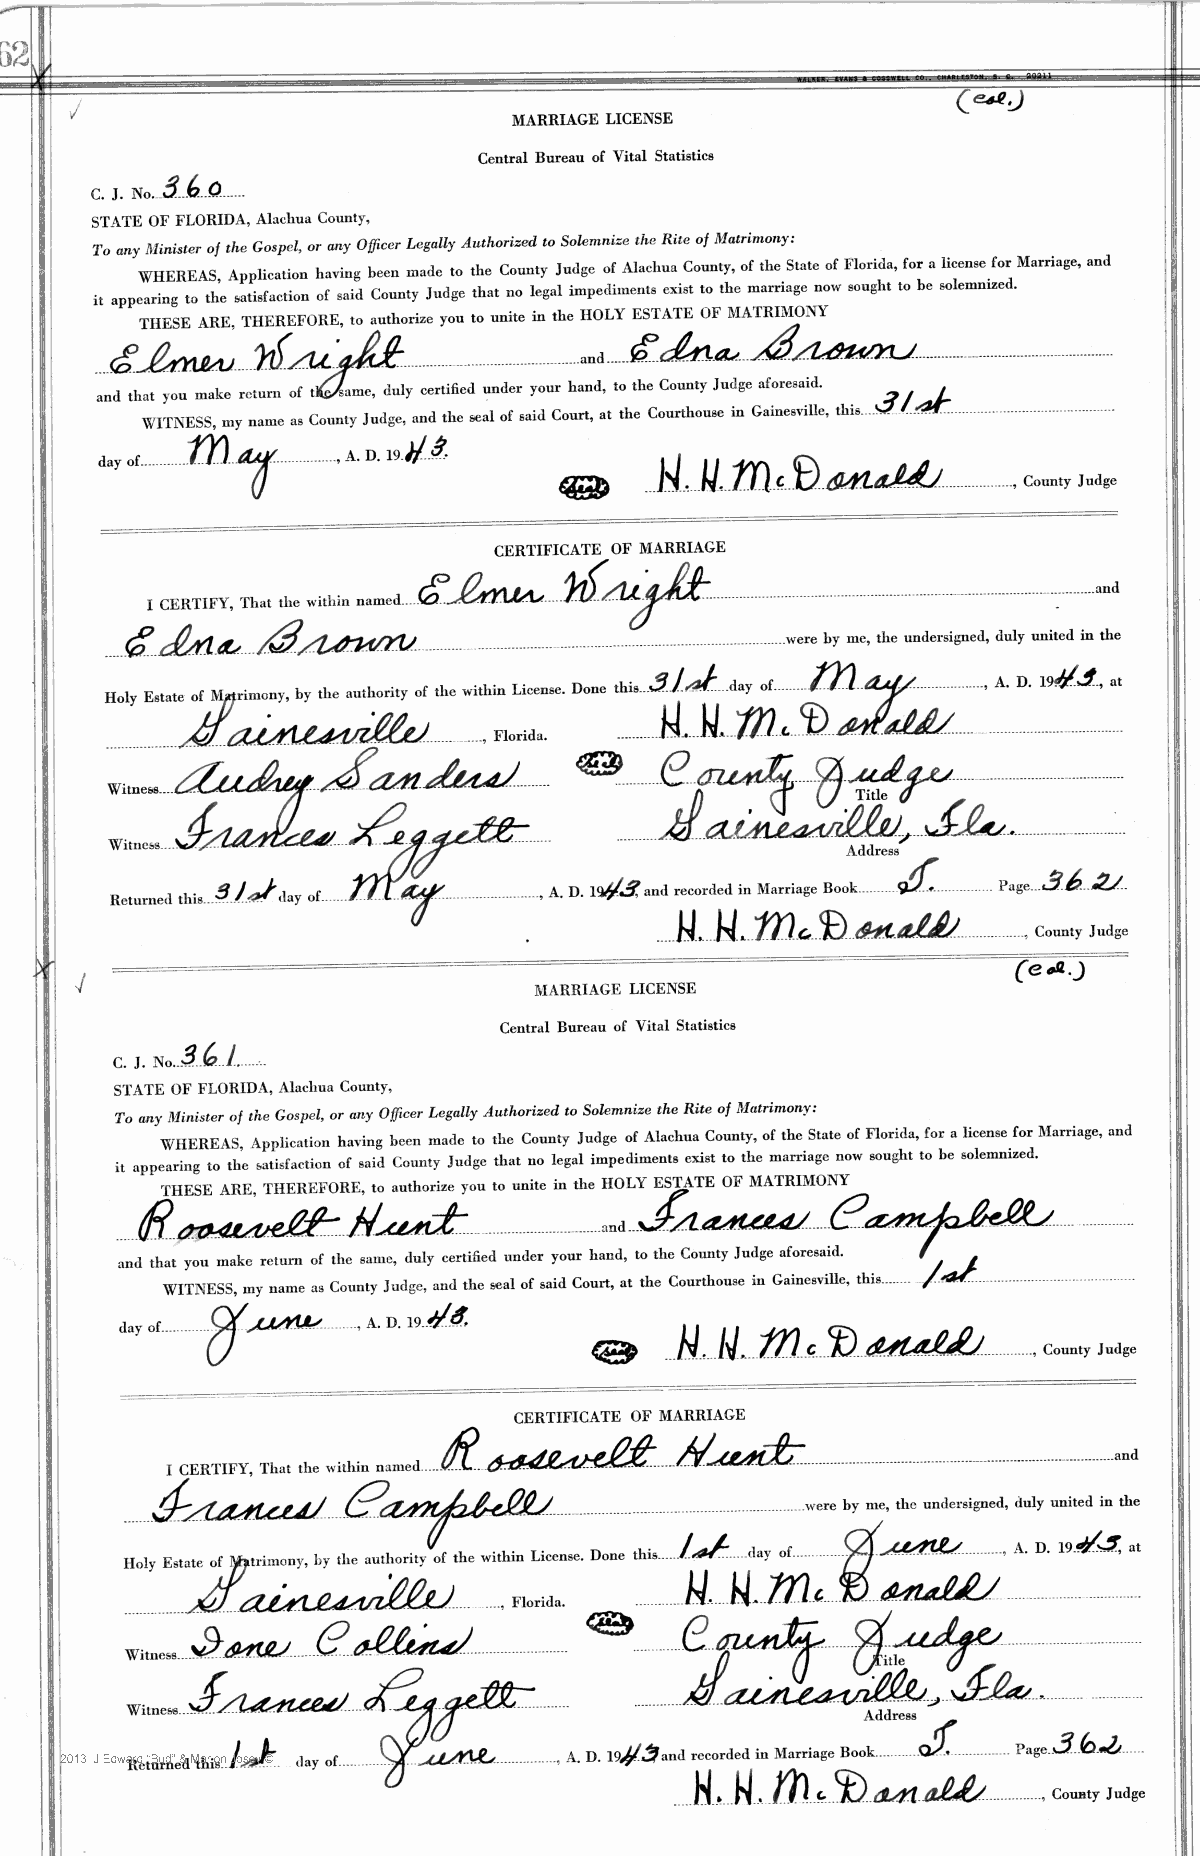 62
WALKER, EVANS & COGSWELL CO., CHARLESTON, S. C. 20211
(Col.)
MARRIAGE LICENSE
Central Bureau of Vital Statistics
C. J. No. 360
STATE OF FLORIDA, Alachua County,
To any Minister of the Gospel, or any Officer Legally Authorized to Solemnize the Rite of Matrimony:
WHEREAS, Application having been made to the County Judge of Alachua County, of the State of Florida, for a license for Marriage, and
it appearing to the satisfaction of said County Judge that no legal impediments exist to the marriage now sought to be solemnized.
THESE ARE, THEREFORE, to authorize you to unite in the HOLY ESTATE OF MATRIMONY
Elmer Wright and Edna Brown
and that you make return of the same, duly certified under your hand, to the County Judge aforesaid.
WITNESS, my name as County Judge, and the seal of said Court, at the Courthouse in Gainesville, this 31st
day of May, A. D. 1943.
Seal H. H. McDonald, County Judge
CERTIFICATE OF MARRIAGE
I CERTIFY, That the within named Elmer Wright and
Edna Brown were by me, the undersigned, duly united in the
Holy Estate of Matrimony, by the authority of the within License. Done this 31st day of May, A. D. 1943, at
Gainesville, Florida. H. H. McDonald
Witness Audrey Sanders Seal County Judge
Title
Witness Frances Leggett Gainesville, Fla.
Address
Returned this 31st day of May, A. D. 1943, and recorded in Marriage Book T. Page 362
H. H. McDonald, County Judge
(Col.)
MARRIAGE LICENSE
Central Bureau of Vital Statistics
C. J. No. 361.
STATE OF FLORIDA, Alachua County,
To any Minister of the Gospel, or any Officer Legally Authorized to Solemnize the Rite of Matrimony:
WHEREAS, Application having been made to the County Judge of Alachua County, of the State of Florida, for a license for Marriage, and
it appearing to the satisfaction of said County Judge that no legal impediments exist to the marriage now sought to be solemnized.
THESE ARE, THEREFORE, to authorize you to unite in the HOLY ESTATE OF MATRIMONY
Roosevelt Hunt and Frances Campbell
and that you make return of the same, duly certified under your hand, to the County Judge aforesaid.
WITNESS, my name as County Judge, and the seal of said Court, at the Courthouse in Gainesville, this 1st
day of June, A. D. 1943.
Seal H. H. McDonald, County Judge
CERTIFICATE OF MARRIAGE
I CERTIFY, That the within named Roosevelt Hunt and
Frances Campbell were by me, the undersigned, duly united in the
Holy Estate of Matrimony, by the authority of the within License. Done this 1st day of June, A. D. 1943, at
Gainesville, Florida. H. H. McDonald
Witness Ione Collins Seal County Judge
Title
Witness Frances Leggett Gainesville, Fla.
Address
2013 J Edward "Bud" &
Returned this 1st day of June, A. D. 1943 and recorded in Marriage Book T. Page 362
H. H. McDonald, County Judge